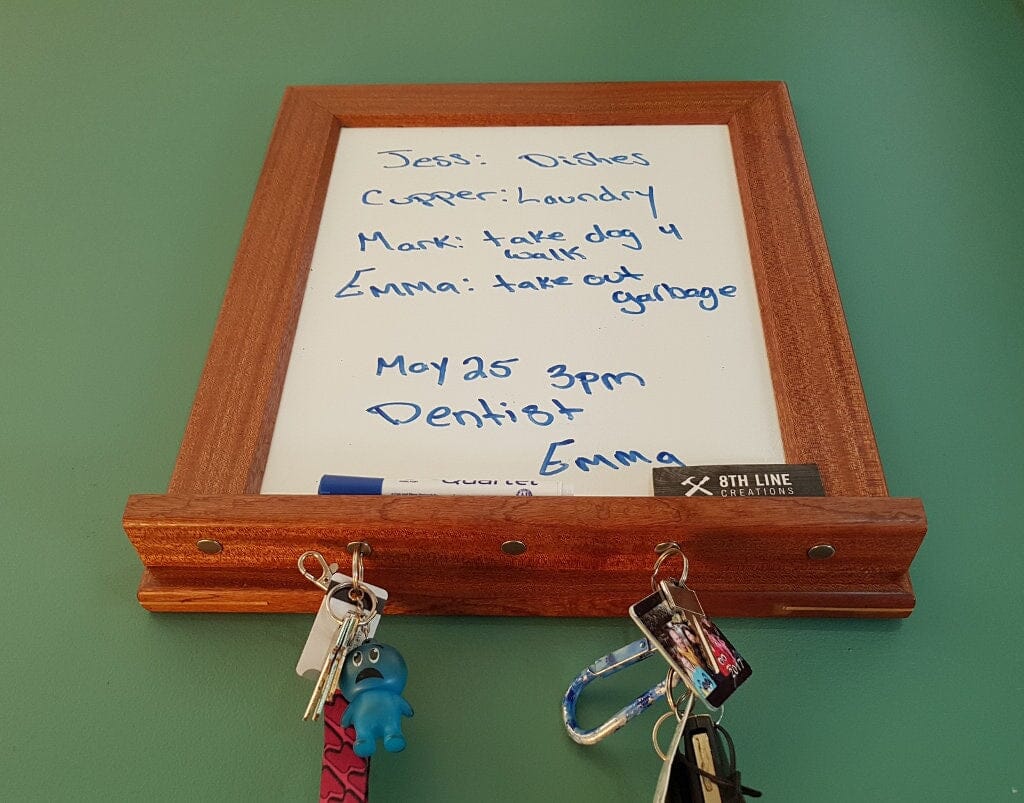 Jess: Dishes
Cupper: Laundry
Mark: take dog 4
walk
Emma: take out
garbage
May 25 3pm
Dentist
Emma
Quartet
8TH LINE
CREATIONS
2017